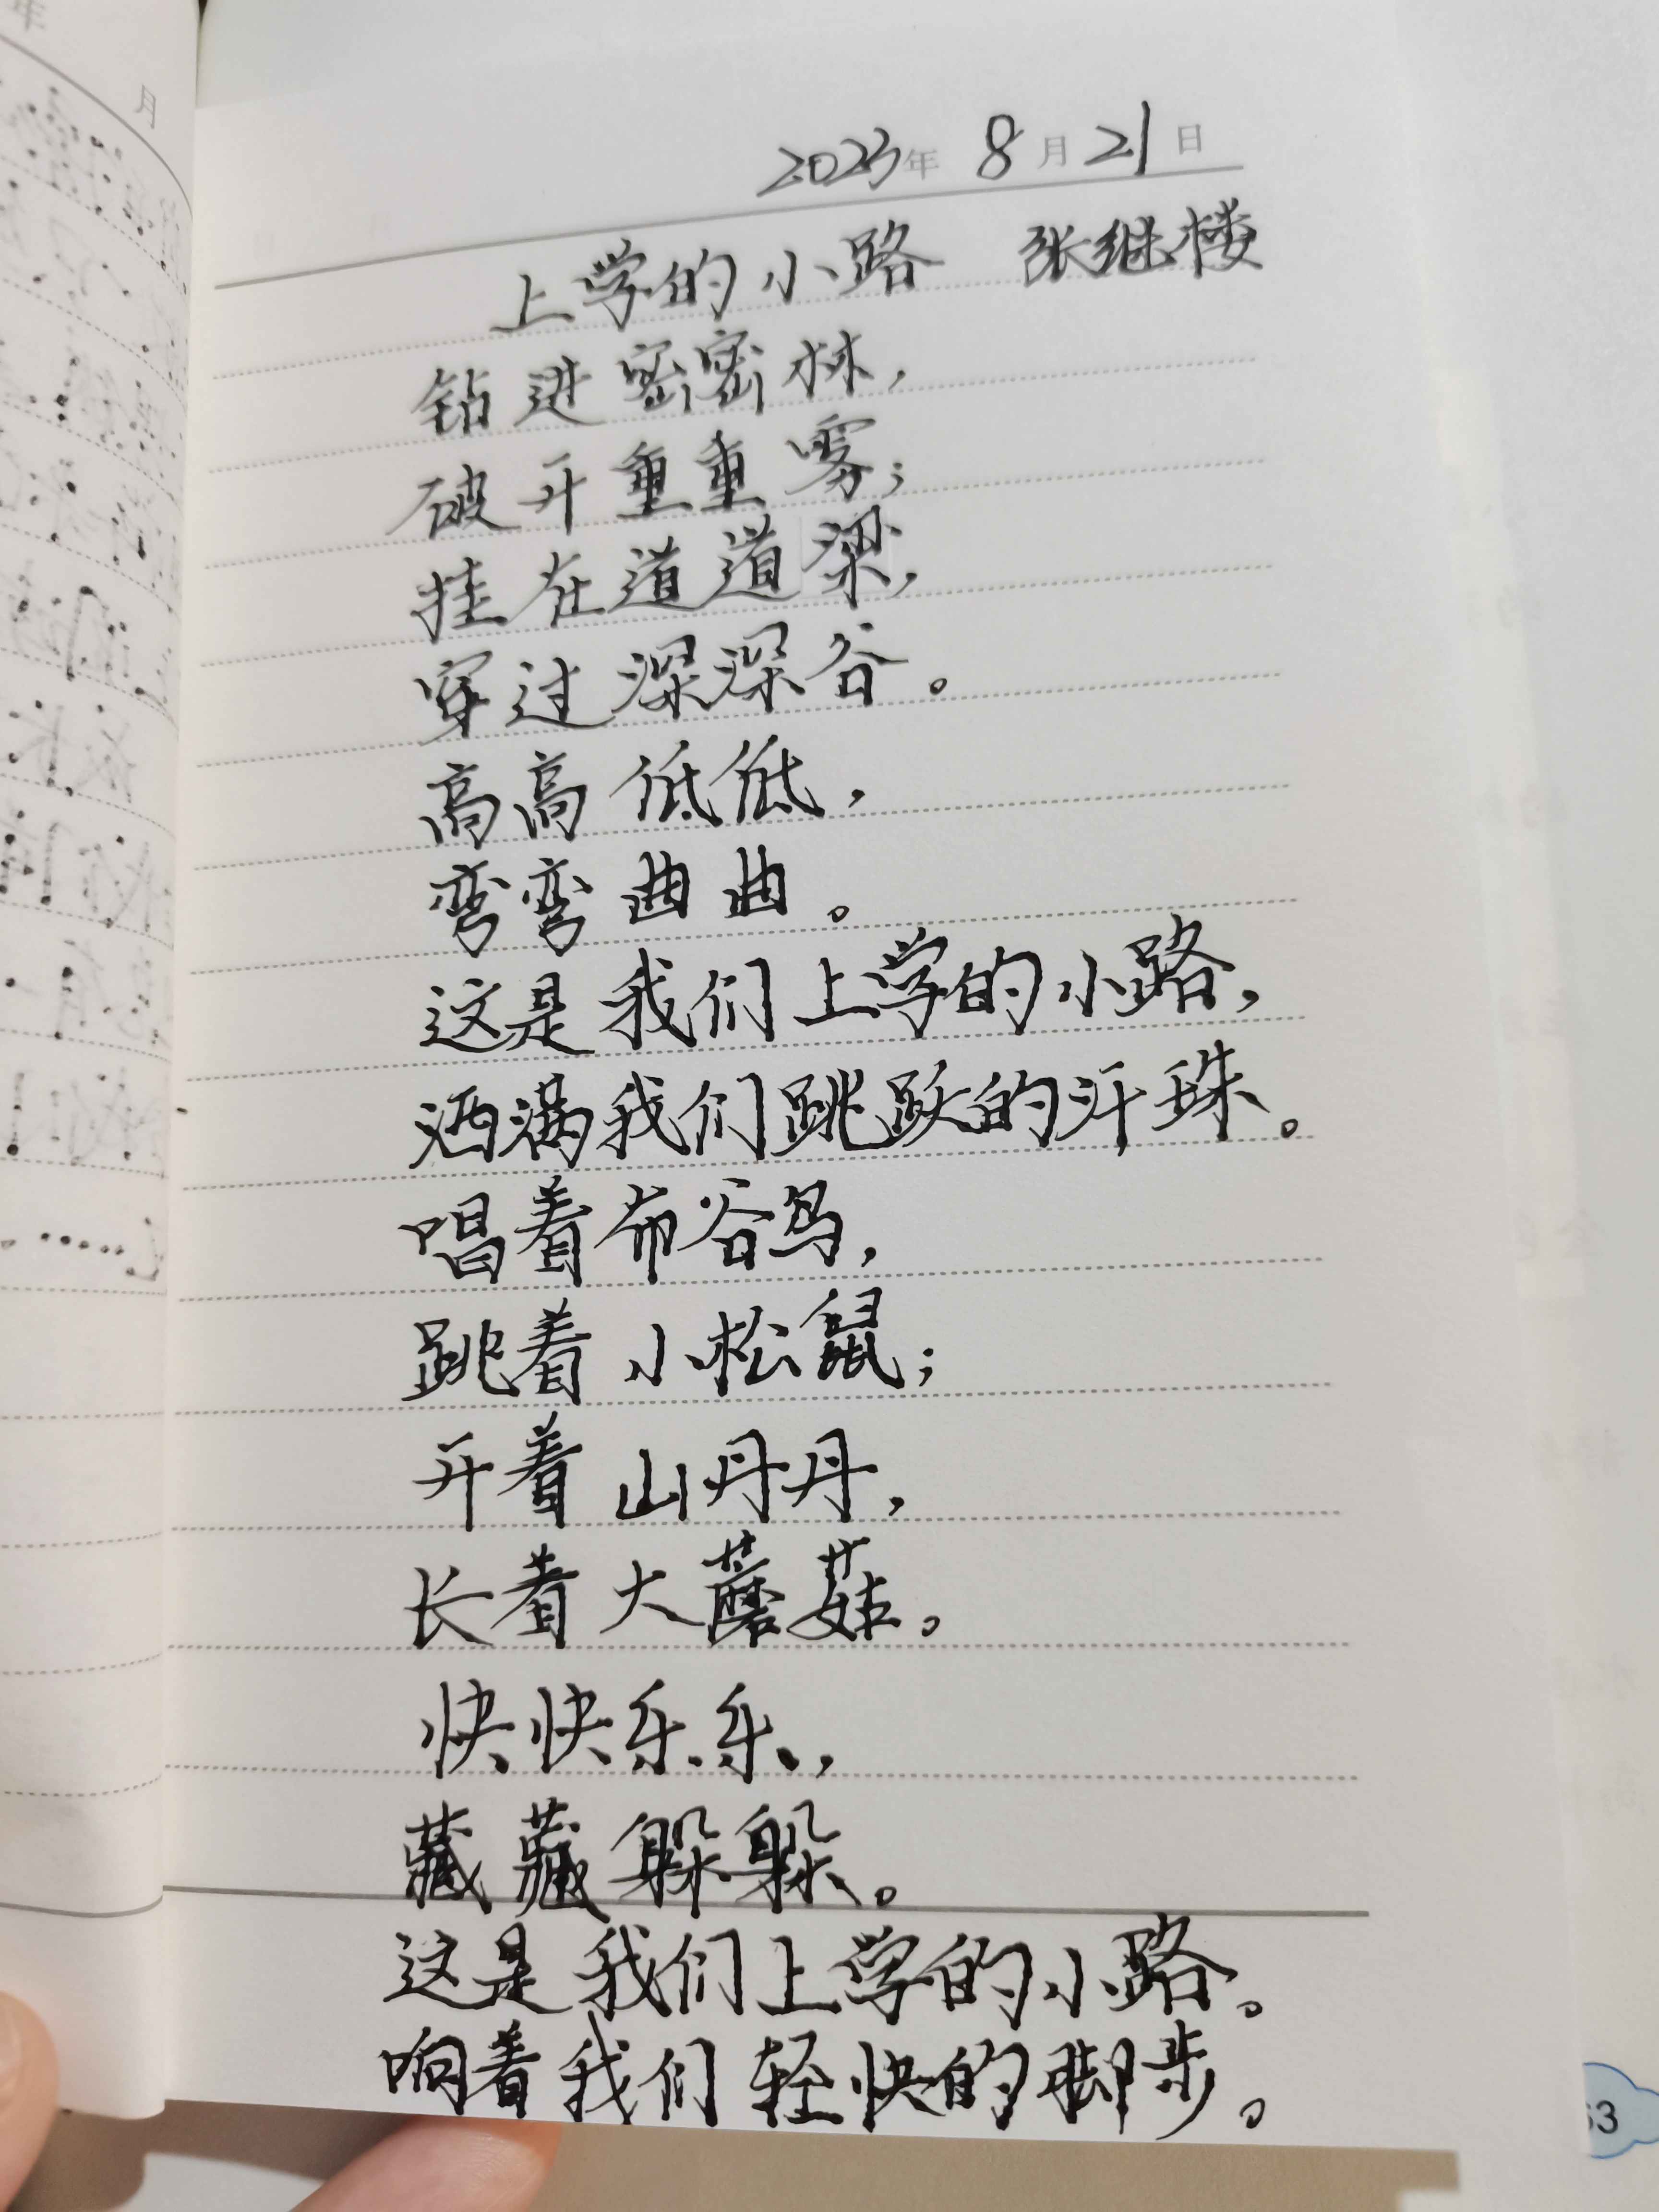 2023年 8月21日
上学的小路 张继楼
钻进密密林,
破开重重雾;
挂在道道梁,
穿过深深谷。
高高低低,
弯弯曲曲。
这是我们上学的小路,
洒满我们跳跃的汗珠。
唱着布谷鸟,
跳着小松鼠;
开着山丹丹,
长着大蘑菇。
快快乐乐,
藏藏躲躲。
这是我们上学的小路。
响着我们轻快的脚步。
月
63